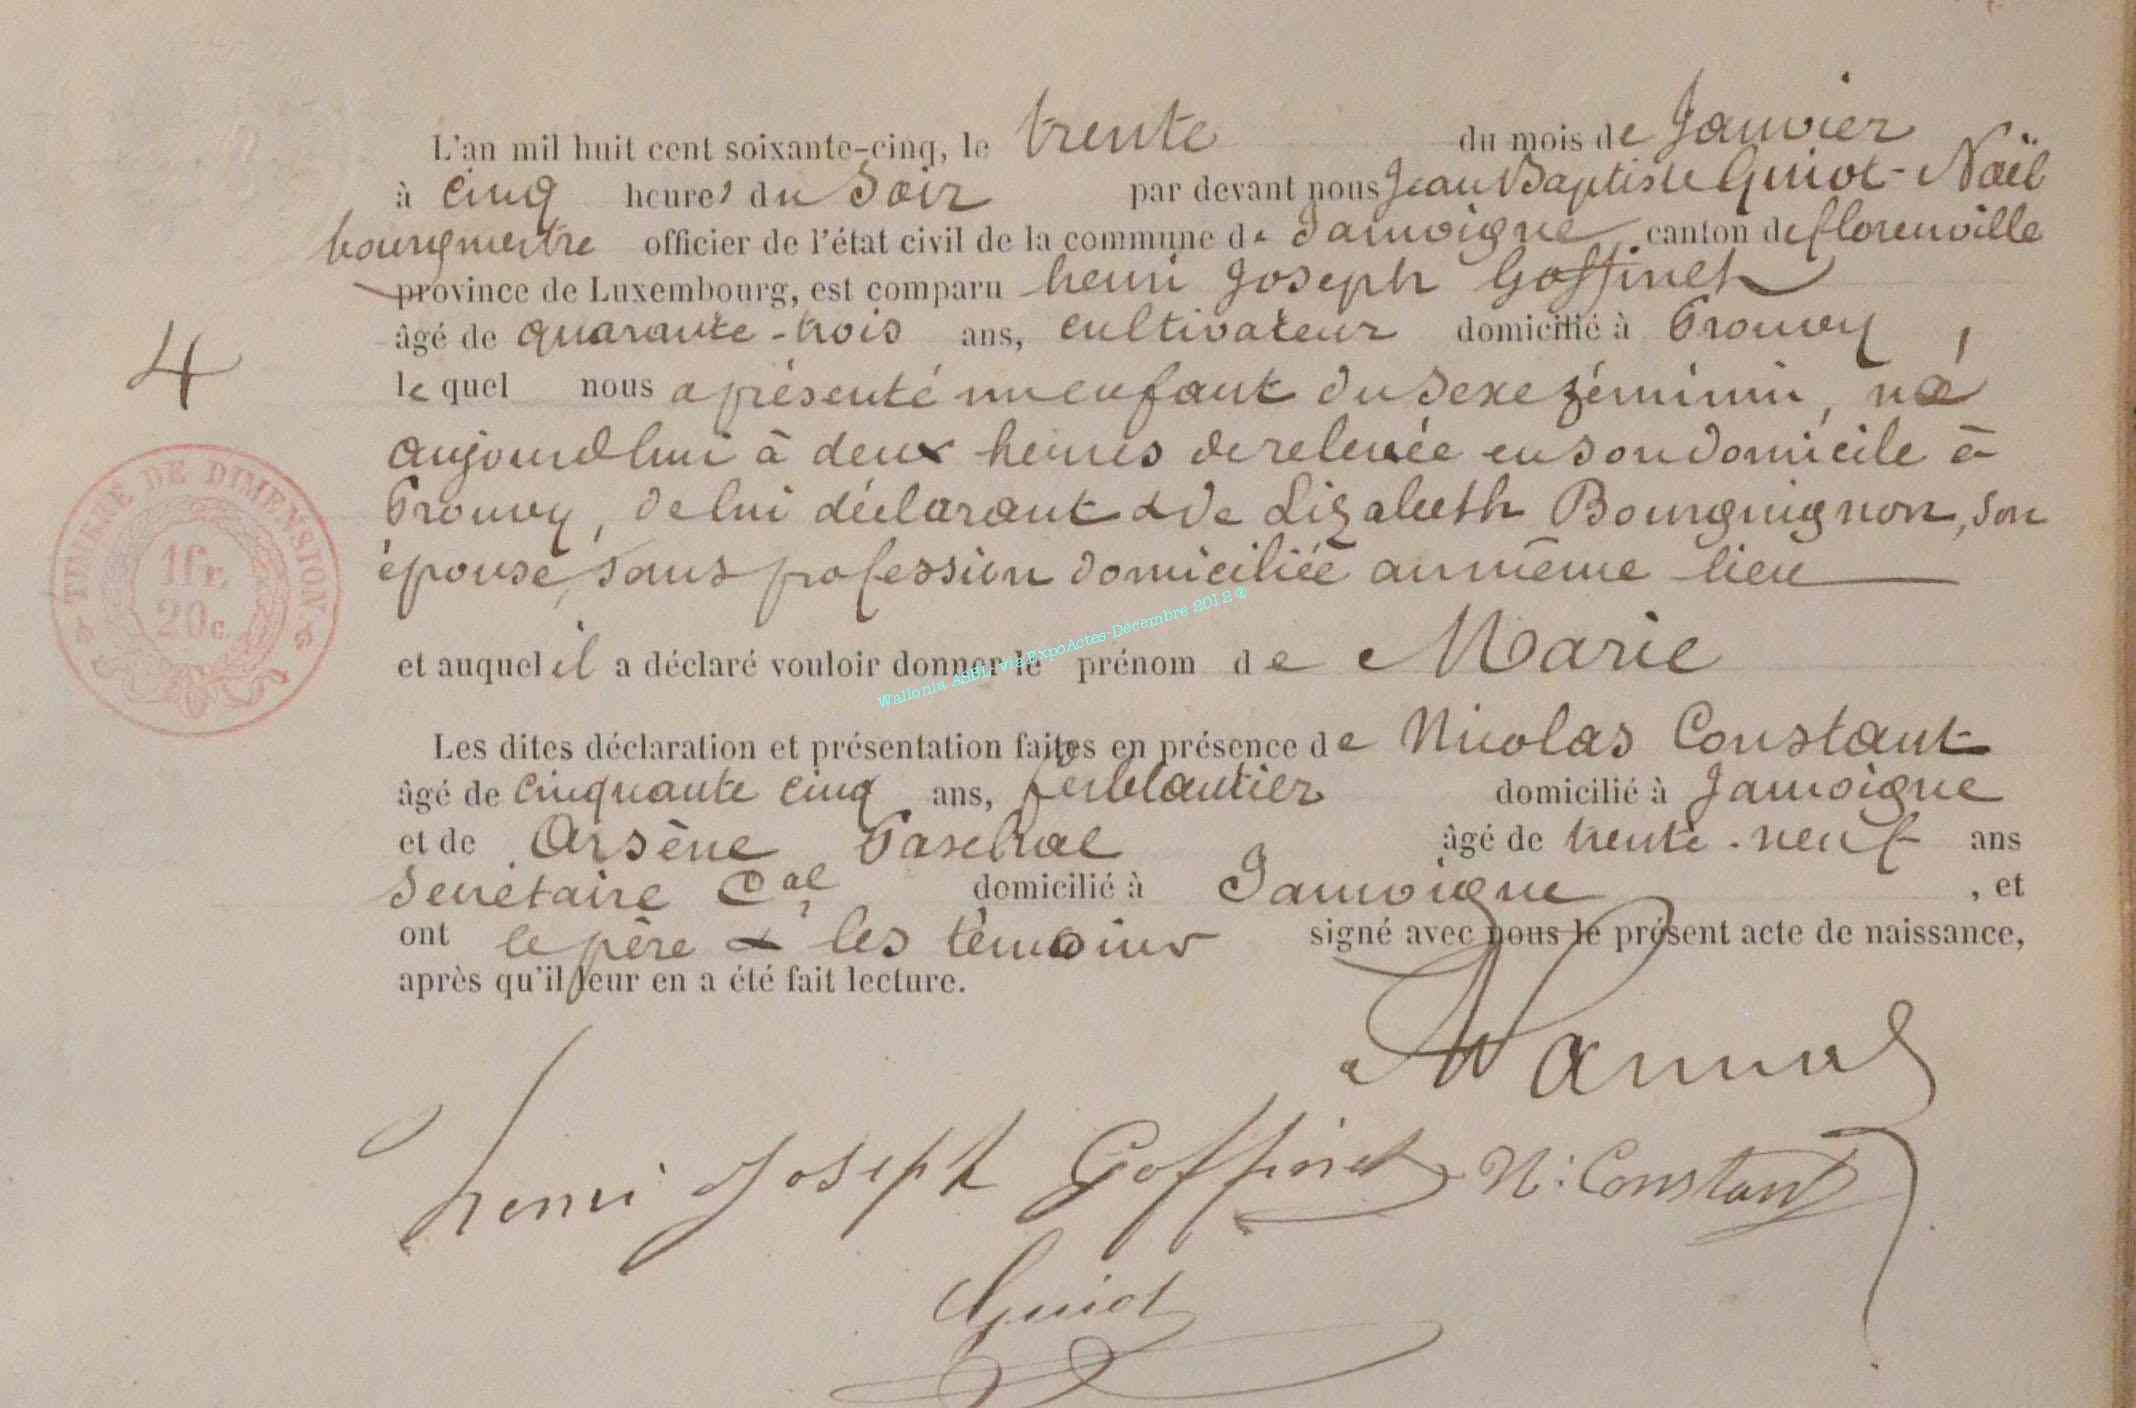 L'an mil huit cent soixante-cinq, le trente du mois de Janvier
à cinq heures du Soir par devant nous Jean Baptiste Guiot-Noël
bourgmestre officier de l'état civil de la commune de Jamoigne, canton de florenville
province de Luxembourg, est comparu henri Joseph Goffinet
âgé de quarante-trois ans, cultivateur domicilié à Prouvy,
4
le quel nous a présenté un enfant du sexe féminin, né
aujourd'hui à deux heures de relevée en son domicile à
Prouvy, de lui déclarant & de Lizabeth Bourguignon, son
épouse, sans profession domiciliée au même lieu
TIMBRE DE DIMENSION
1fr.
20c.
et auquel il a déclaré vouloir donner le prénom de Marie
Wallonia ASBL via ExpoActes-Décembre 2012 ®
Les dites déclaration et présentation faites en présence de Nicolas Constant
âgé de cinquante cinq ans, ferblantier domicilié à Jamoigne
et de Arsène Paschal âgé de trente-neuf ans
Secrétaire Cal domicilié à Jamoigne, et
ont le père & les témoins signé avec nous le présent acte de naissance,
après qu'il leur en a été fait lecture.
henri Joseph Goffinet N: Constant
Guiot